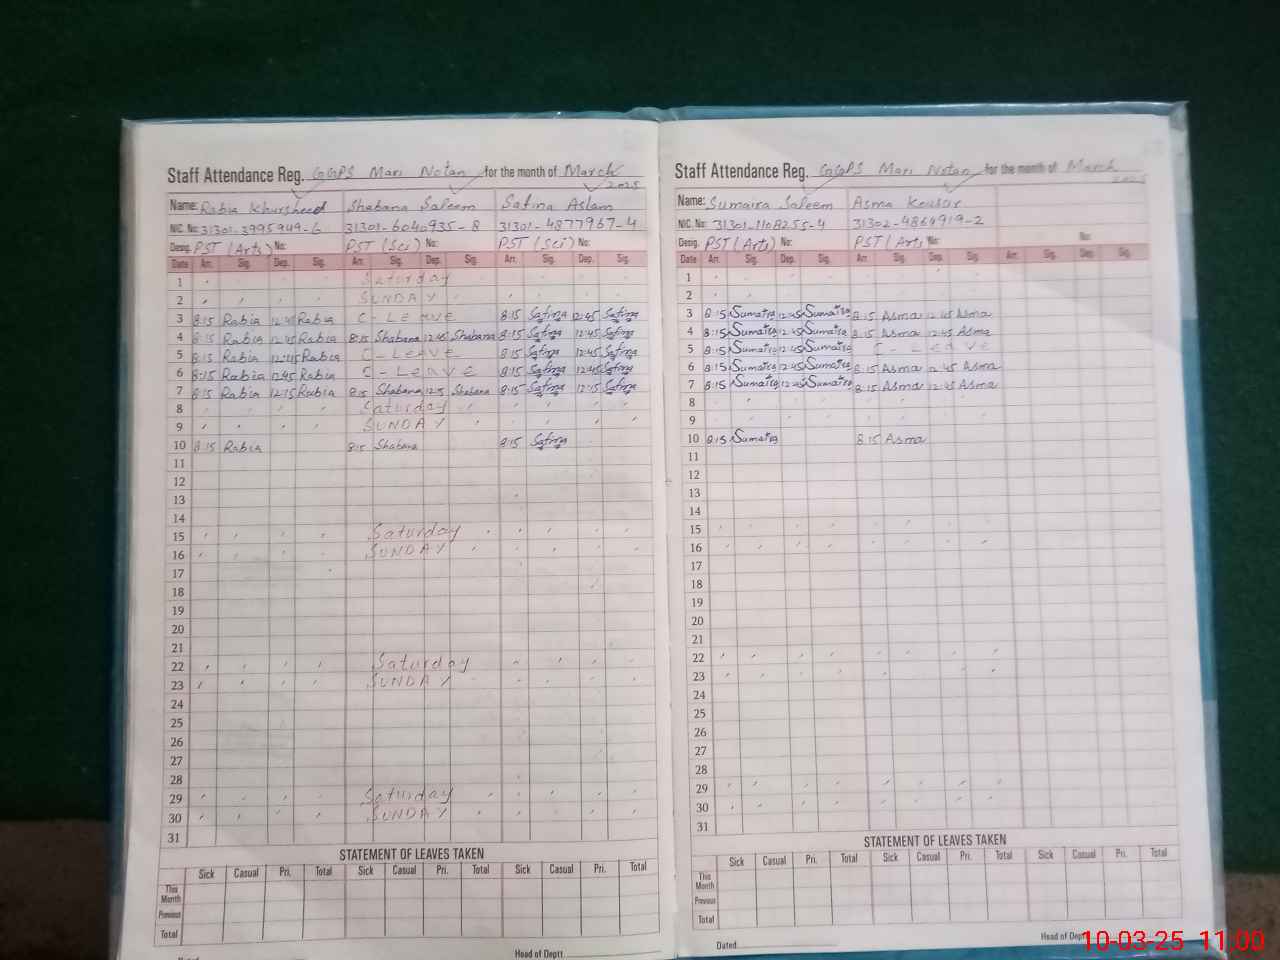 Staff Attendance Reg. GGPS Mari Notan for the month of March 2025
Name: Rabia Khursheed Shabana Saleem Safina Aslam
NIC. No: 31301-3995949-6 31301-6040935-8 31301-4877967-4
Desig. PST (Arts) No: PST (Sci) No: PST (Sci) No:
Date Arr. Sig. Dep. Sig. Arr. Sig. Dep. Sig. Arr. Sig. Dep. Sig.
1 Saturday
2 SUNDAY
3 8:15 Rabia 12:45 Rabia C-Leave 8:15 Safina 12:45 Safina
4 8:15 Rabia 12:45 Rabia 8:15 Shabana 12:45 Shabana 8:15 Safina 12:45 Safina
5 8:15 Rabia 12:45 Rabia C-Leave 8:15 Safina 12:45 Safina
6 8:15 Rabia 12:45 Rabia C-Leave 8:15 Safina 12:45 Safina
7 8:15 Rabia 12:15 Rabia 8:15 Shabana 12:15 Shabana 8:15 Safina 12:15 Safina
8 Saturday
9 SUNDAY
10 8:15 Rabia 8:15 Shabana 8:15 Safina
11
12
13
14
15 Saturday
16 SUNDAY
17
18
19
20
21
22 Saturday
23 SUNDAY
24
25
26
27
28
29 Saturday
30 SUNDAY
31
STATEMENT OF LEAVES TAKEN
Sick Casual Pri. Total Sick Casual Pri. Total Sick Casual Pri. Total
This Month
Previous
Total
Dated Head of Deptt.
Staff Attendance Reg. GGPS Mari Notan for the month of March 2025
Name: Sumaira Saleem Asma Kousar
NIC. No: 31301-1108255-4 31302-4864919-2
Desig. PST (Arts) No: PST (Arts) No: No:
Date Arr. Sig. Dep. Sig. Arr. Sig. Dep. Sig. Arr. Sig. Dep. Sig.
1
2
3 8:15 Sumaira 12:45 Sumaira 8:15 Asma 12:45 Asma
4 8:15 Sumaira 12:45 Sumaira 8:15 Asma 12:45 Asma
5 8:15 Sumaira 12:45 Sumaira C-Leave
6 8:15 Sumaira 12:45 Sumaira 8:15 Asma 12:45 Asma
7 8:15 Sumaira Sumaira 8:15 Asma Asma
8
9
10 8:15 Sumaira 8:15 Asma
11
12
13
14
15
16
17
18
19
20
21
22
23
24
25
26
27
28
29
30
31
STATEMENT OF LEAVES TAKEN
Sick Casual Pri. Total Sick Casual Pri. Total Sick Casual Pri. Total
This Month
Previous
Total
Dated Head of Deptt
10-03-25 11:00